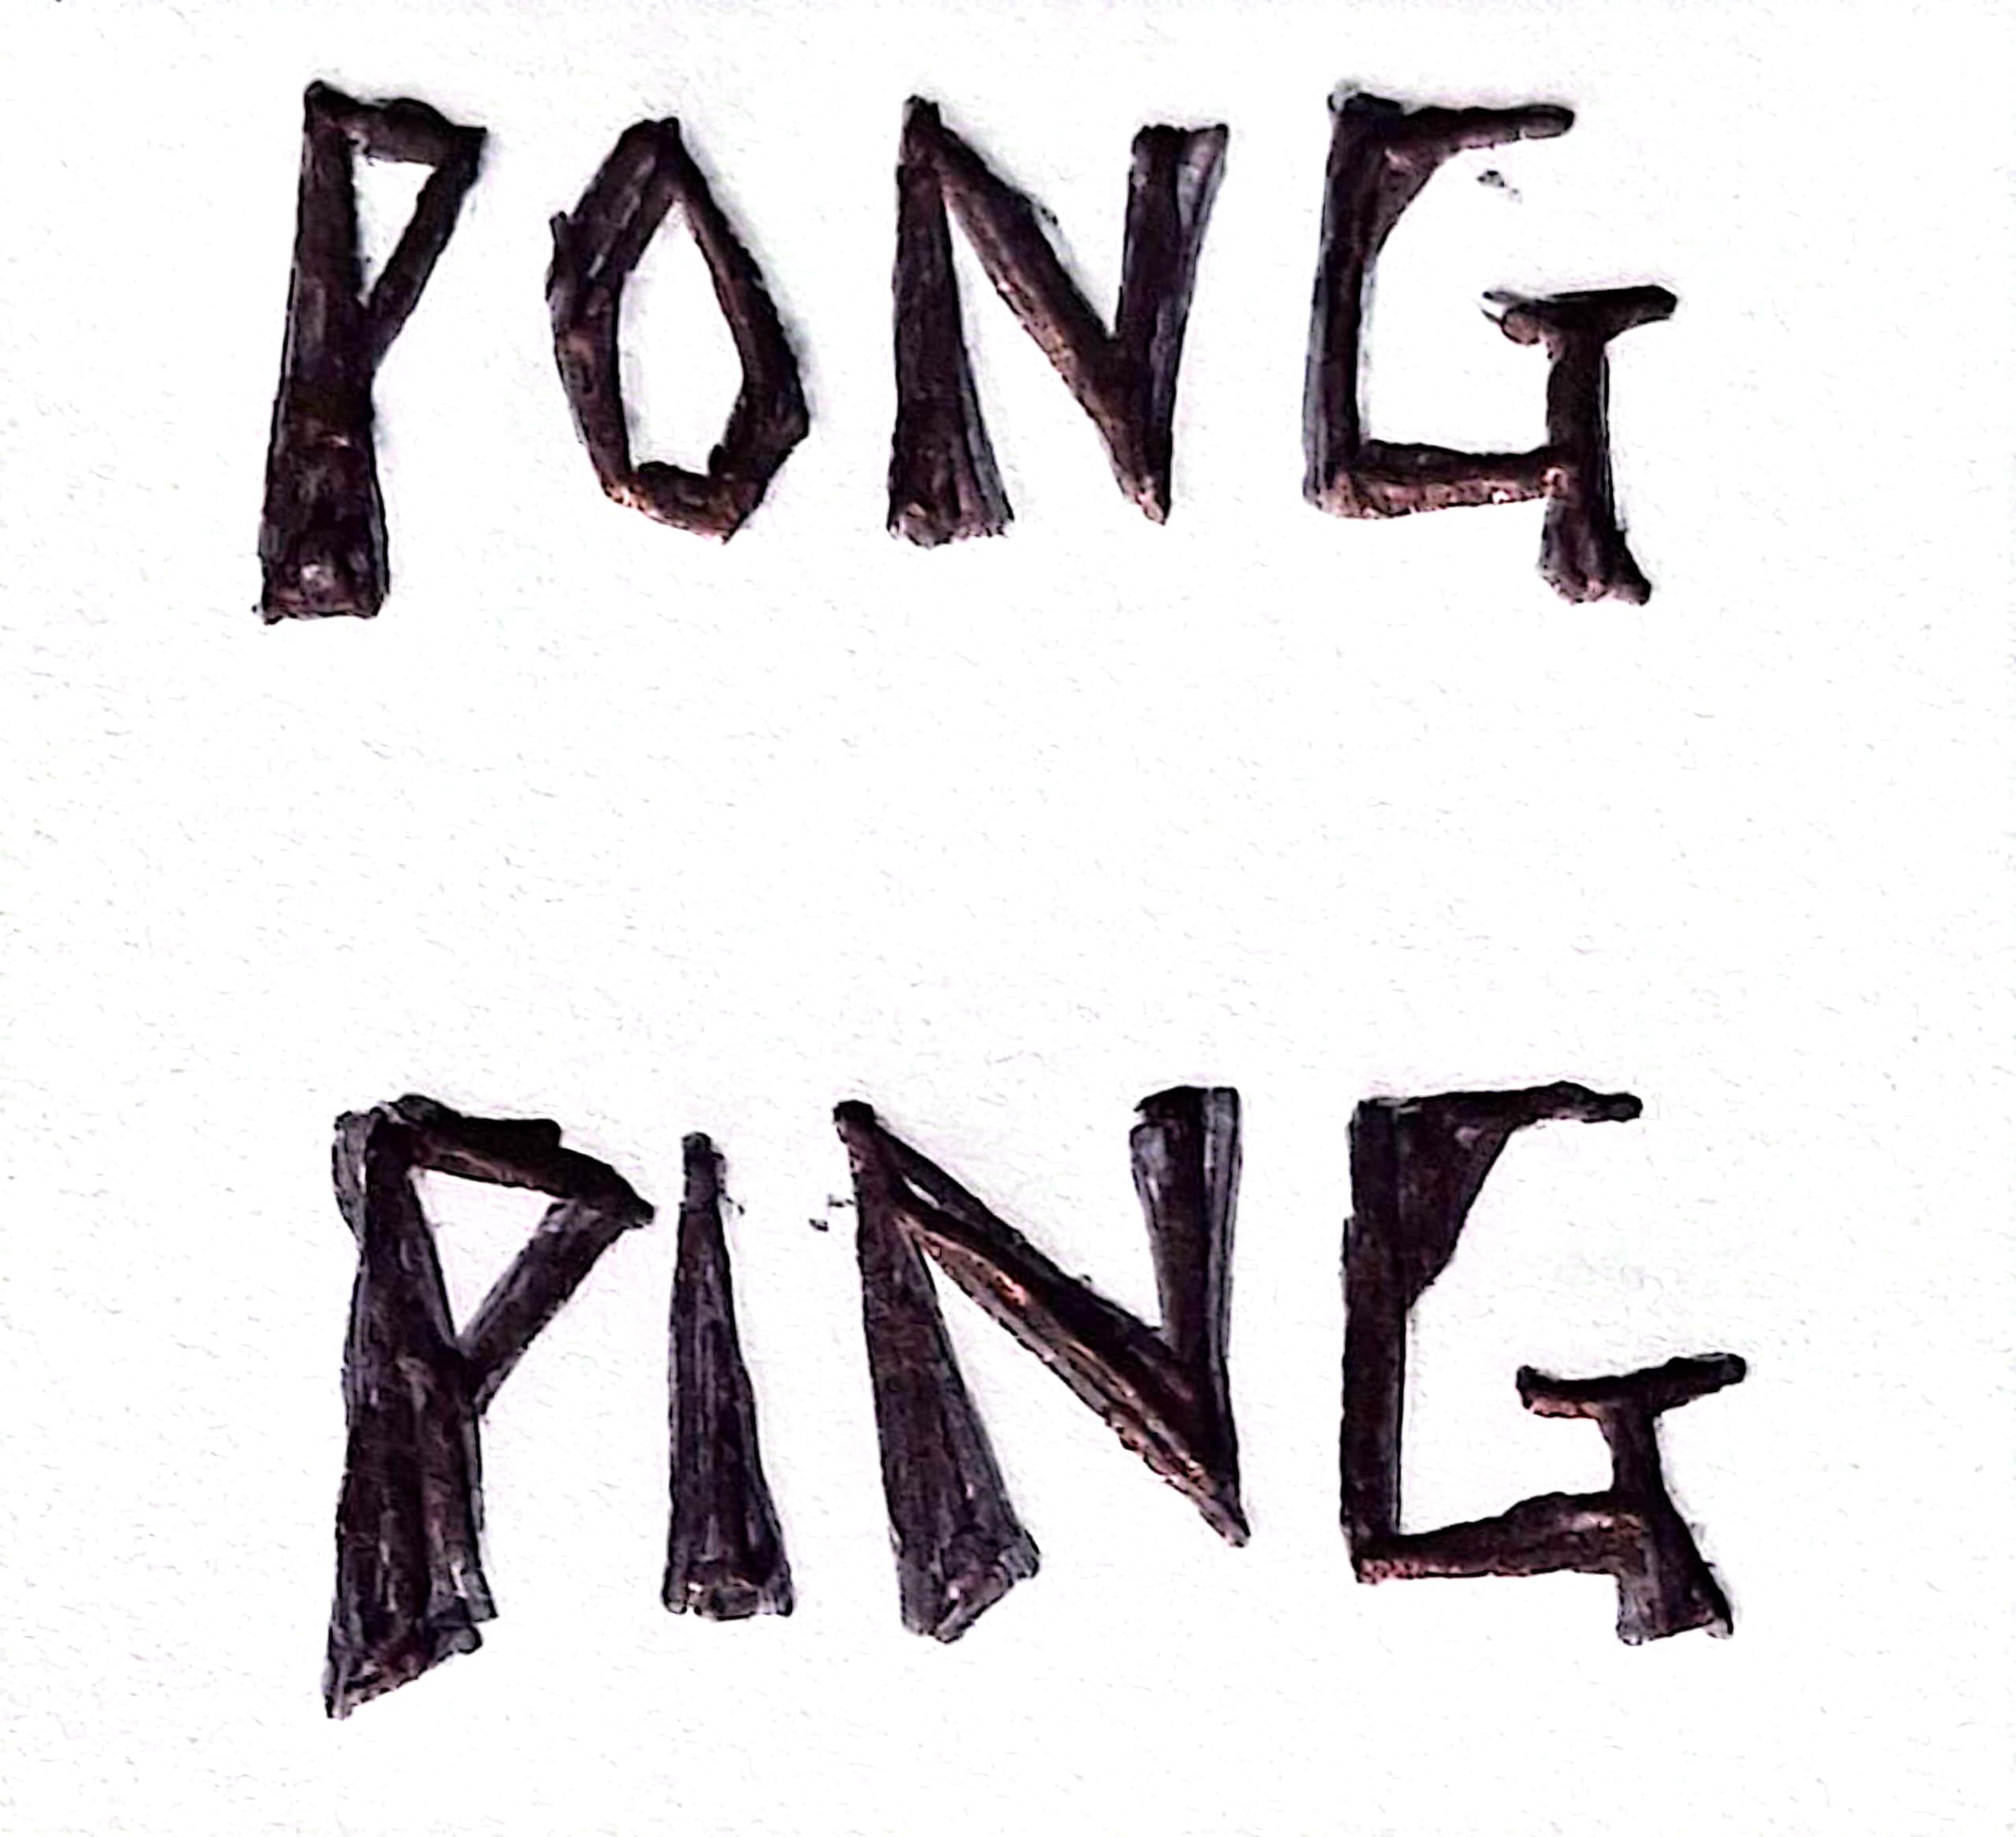 PONG
PING